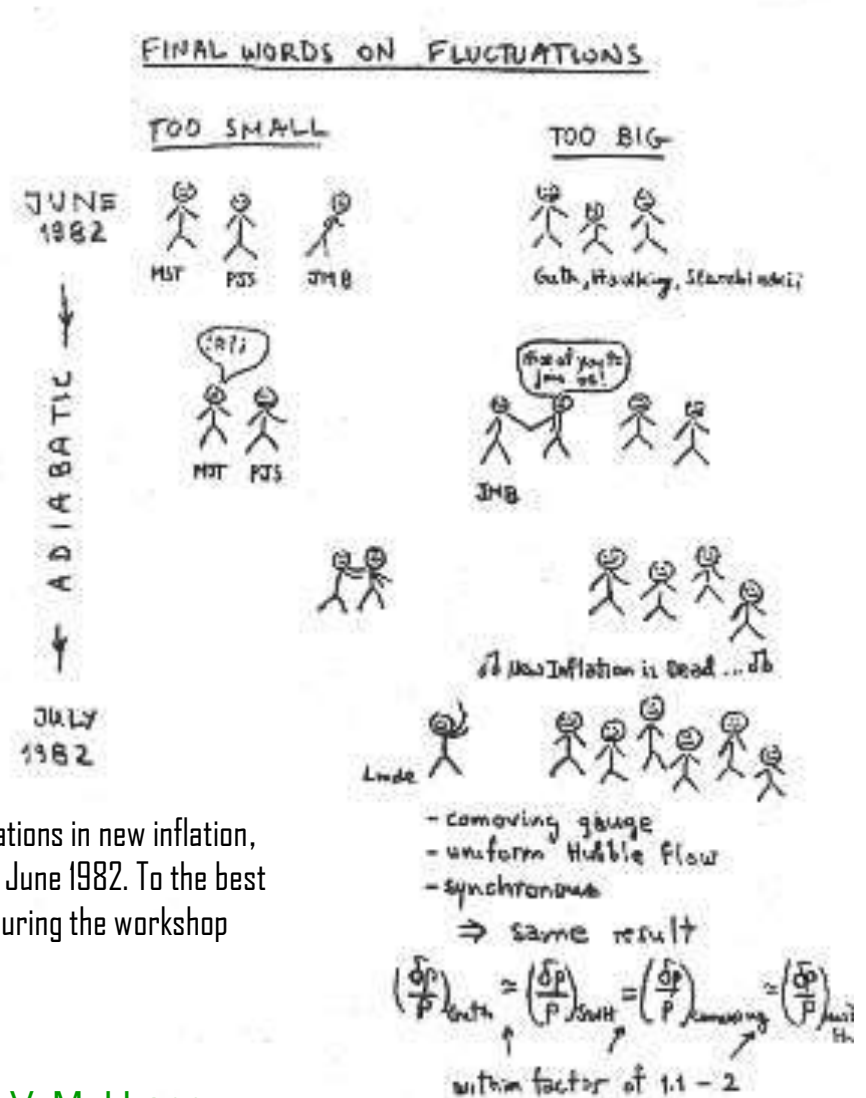 FINAL WORDS ON FLUCTUATIONS
TOO SMALL
TOO BIG
JUNE
1982
MST PJS JMB
Guth, Hawking, Starobinskii
ADIABATIC
nice of you to
join us!
MST PJS
JMB
New Inflation is Dead ...
JULY
1982
Linde
- comoving gauge
- uniform Hubble flow
- synchronous
⇒ same result
(δρ/ρ)Guth ≃ (δρ/ρ) = (δρ/ρ)comoving ≃ (δρ/ρ)
within factor of 1.1 - 2
ations in new inflation,
June 1982. To the best
uring the workshop